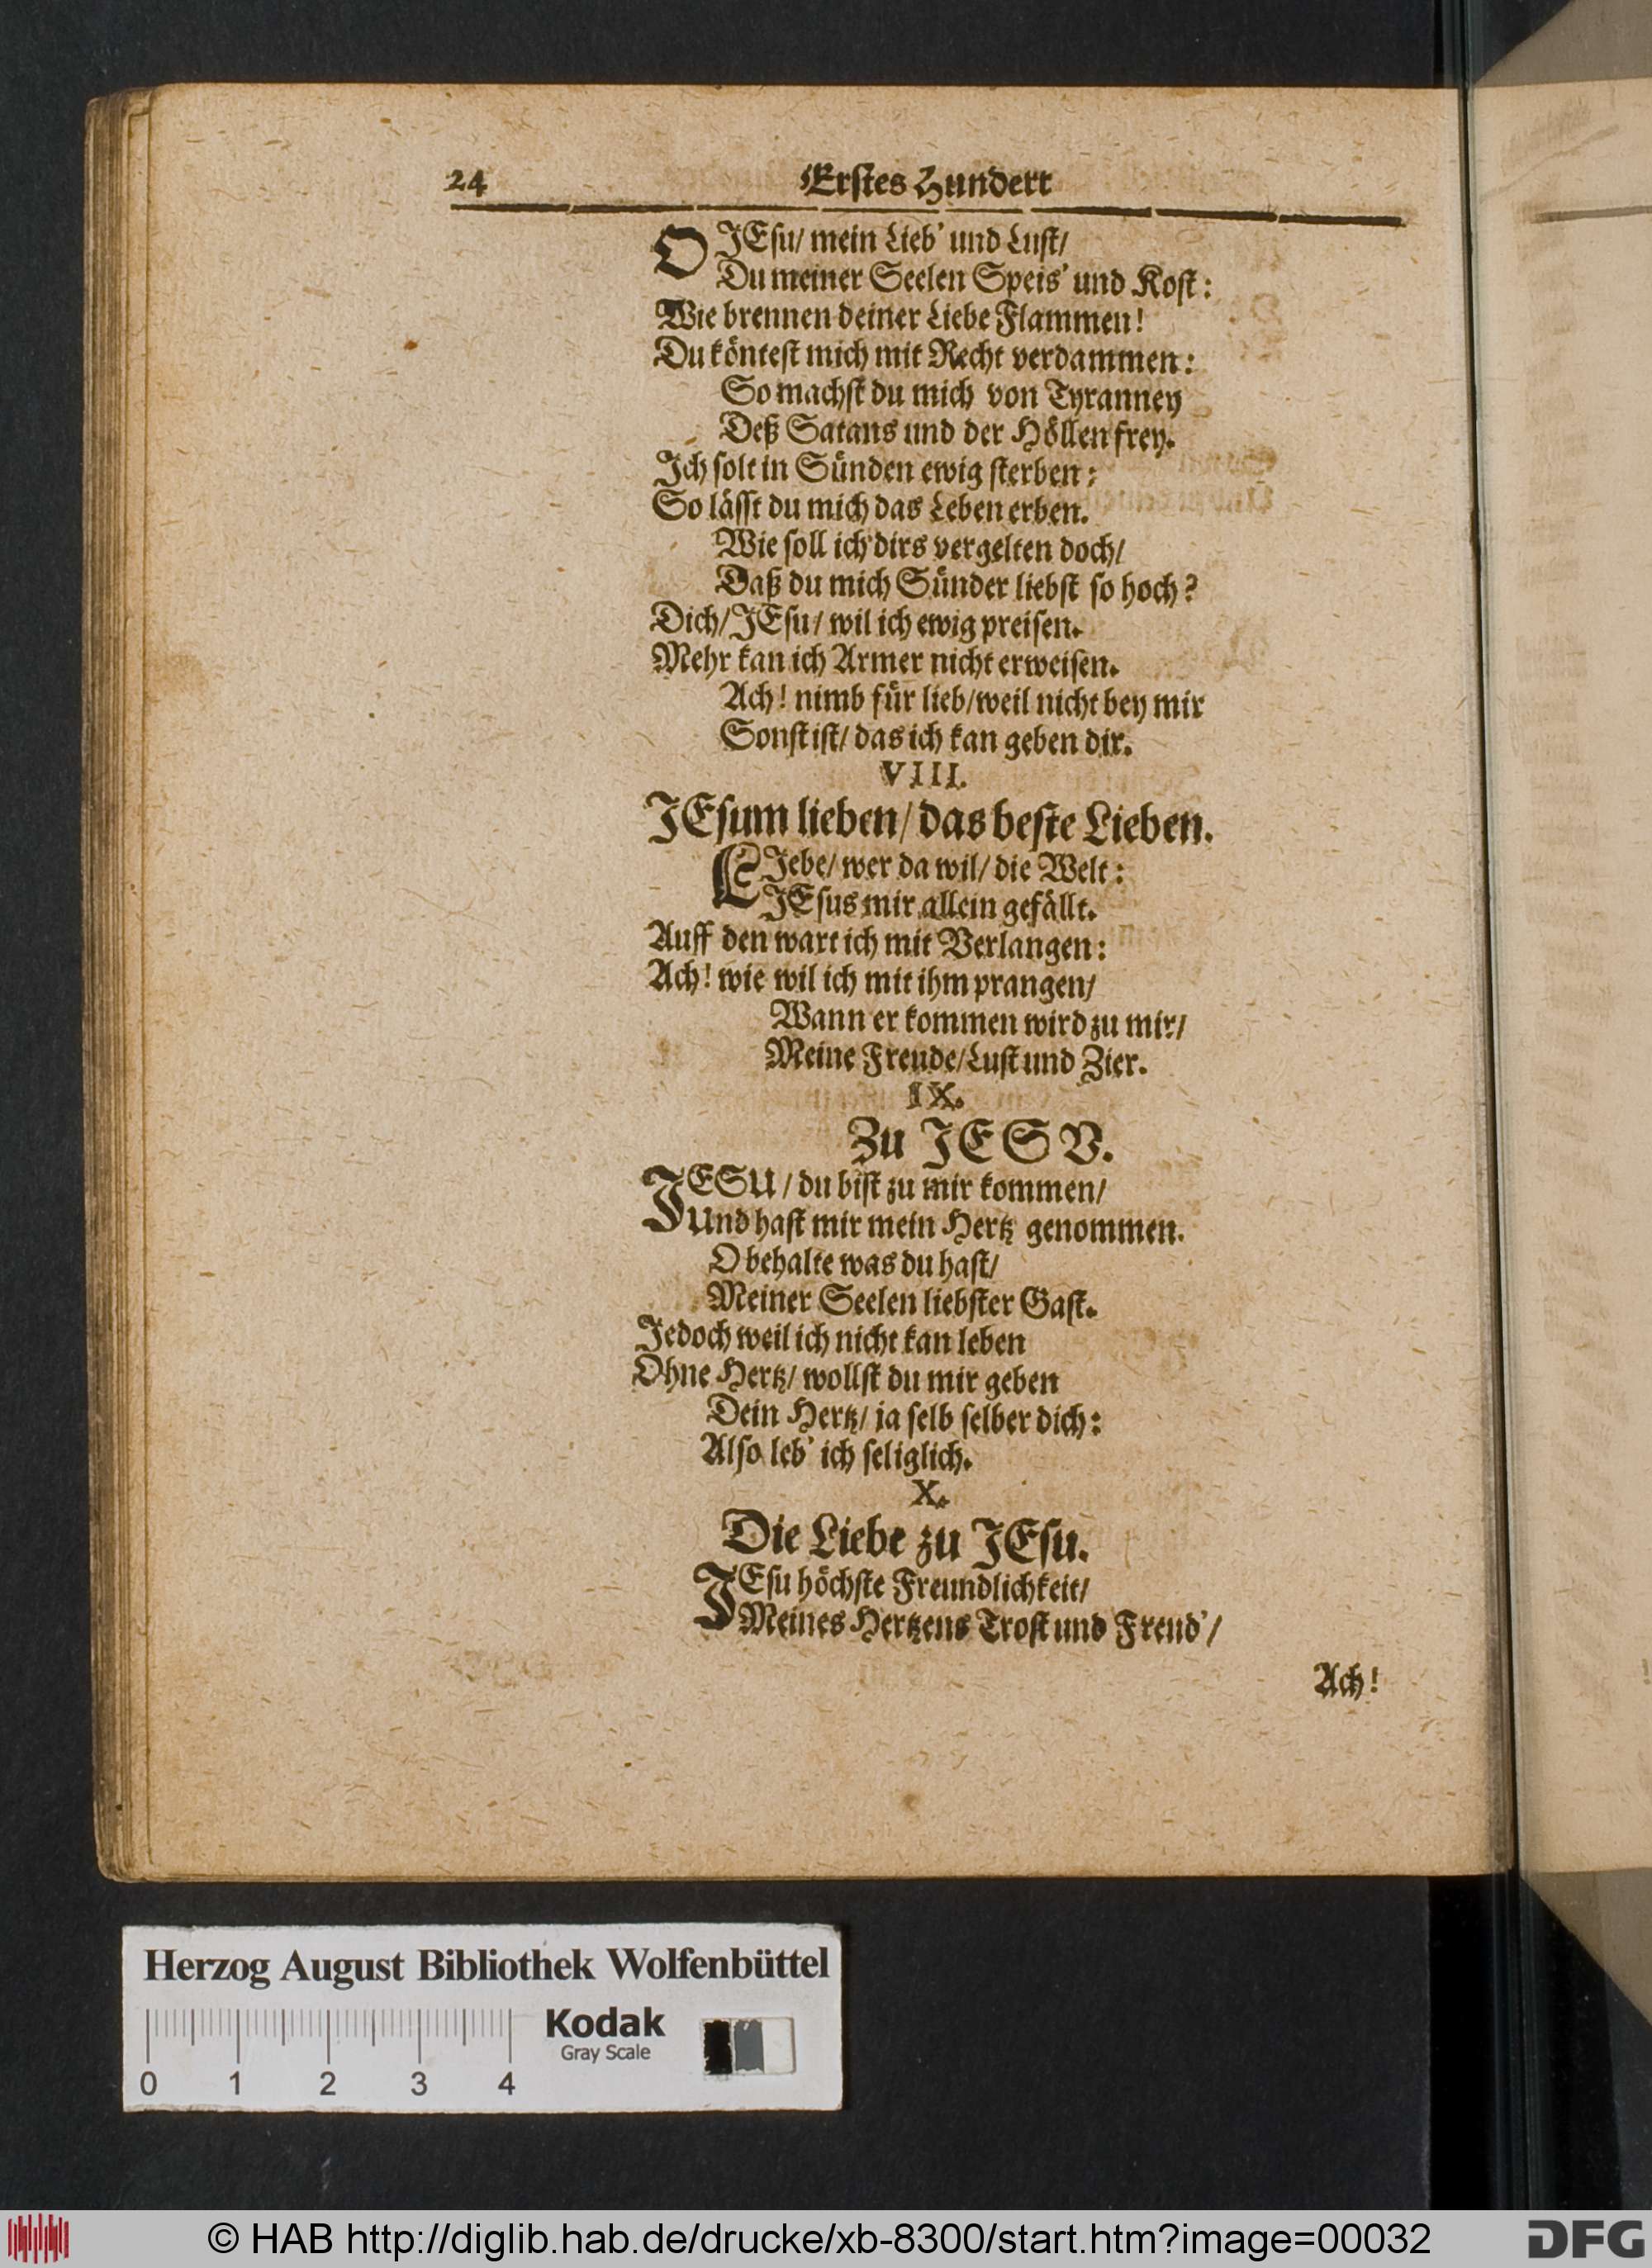 24 Erstes Hundert
O JEsu/ mein Lieb' und Lust/
Du meiner Seelen Speis' und Kost:
Wie brennen deiner Liebe Flammen!
Du köntest mich mit Recht verdammen:
So machst du mich von Tyranney
Deß Satans und der Höllen frey.
Ich solt in Sünden ewig sterben:
So lässt du mich das Leben erben.
Wie soll ich dirs vergelten doch/
Daß du mich Sünder liebst so hoch?
Dich/ JEsu/ wil ich ewig preisen.
Mehr kan ich Armer nicht erweisen.
Ach! nimb für lieb/ weil nicht bey mir
Sonst ist/ das ich kan geben dir.
VIII.
JEsum lieben/ das beste Lieben.
LIebe/ wer da wil/ die Welt:
JEsus mir allein gefällt.
Auff den wart ich mit Verlangen:
Ach! wie wil ich mit ihm prangen/
Wann er kommen wird zu mir/
Meine Freude/ Lust und Zier.
IX.
Zu JESV.
JESU/ du bist zu mir kommen/
Und hast mir mein Hertz genommen.
O behalte was du hast/
Meiner Seelen liebster Gast.
Jedoch weil ich nicht kan leben
Ohne Hertz/ wollst du mir geben
Dein Hertz/ ja selb selber dich:
Also leb' ich seliglich.
X.
Die Liebe zu JEsu.
JEsu höchste Freundlichkeit/
Meines Hertzens Trost und Freud'/
Ach!
Herzog August Bibliothek Wolfenbüttel
Kodak
Gray Scale
0 1 2 3 4
© HAB http://diglib.hab.de/drucke/xb-8300/start.htm?image=00032
DFG